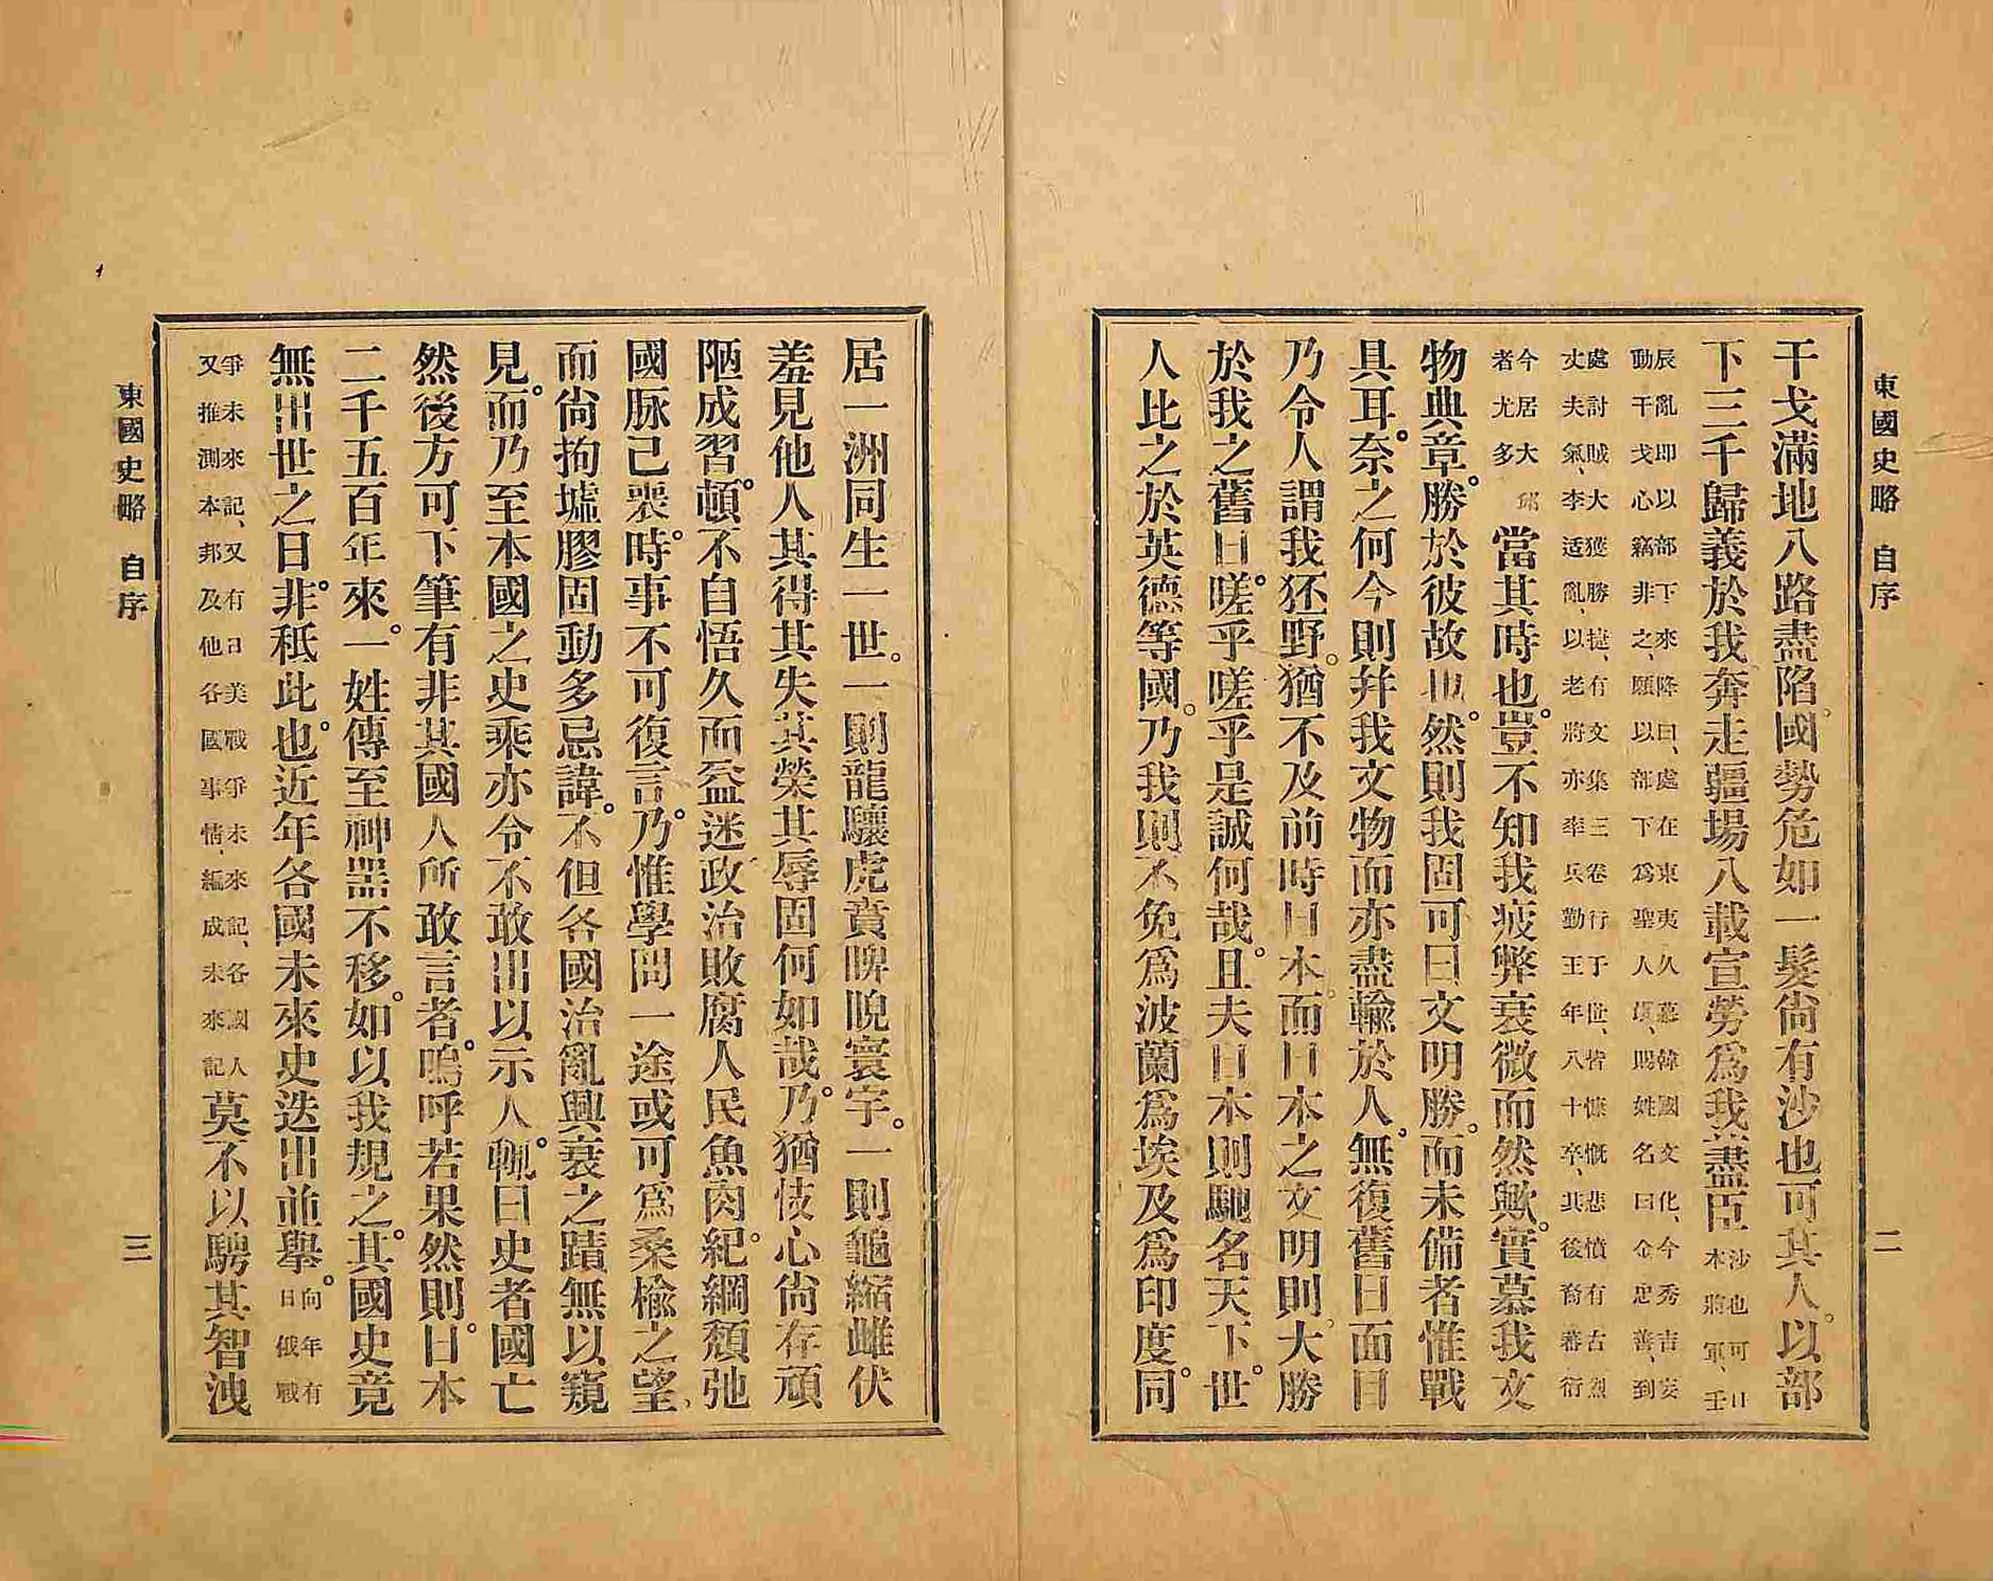 東國史略 自序 二
干戈滿地八路盡陷。國勢危如一髮尙有沙也可其人。以部
下三千歸義於我奔走疆場八載宣勞爲我藎臣
沙也可日
本將軍、壬
辰亂卽以部下來降曰、處在東夷久慕韓國文化、今秀吉妄
動干戈心竊非之、願以部下爲聖人氓、賜姓名曰金忠善、到
處討賊大獲勝捷、有文集三卷行于世、皆慷慨悲憤有古烈
丈夫氣、李适亂、以老將亦率兵勤王年八十卒、其後裔蕃衍
今居大邱
者尤多
當其時也。豈不知我疲弊衰微而然歟。實慕我文
物典章。勝於彼故也。然則我固可曰文明勝。而未備者惟戰
具耳。奈之何今則幷我文物而亦盡輸於人。無復舊日面目
乃令人謂我狉野。猶不及前時日本。而日本之文明則。大勝
於我之舊日。嗟乎嗟乎是誠何哉。且夫日本則馳名天下。世
人比之於英德等國。乃我則不免爲波蘭爲埃及爲印度。同
居一洲同生一世。一則龍驤虎賁睥睨寰宇。一則龜縮雌伏
羞見他人其得其失其榮其辱固何如哉。乃猶忮心尙存頑
陋成習。頓不自悟久而益迷政治敗腐人民魚肉。紀綱頹弛
國脉已喪。時事不可復言。乃惟學問一途或可爲桑楡之望、
而尙拘墟膠固動多忌諱。不但各國治亂興衰之蹟無以窺
見。而乃至本國之史乘亦令不敢出以示人。輒曰史者國亡
然後方可下筆有非其國人所敢言者。嗚呼若果然則。日本
二千五百年來。一姓傳至神器不移。如以我規之。其國史竟
無出世之日。非秪此也。近年各國未來史迭出並擧。
向年有
日俄戰
爭未來記、又有日美戰爭未來記、各國人
又推測本邦及他各國事情、編成未來記
莫不以騁其智洩
東國史略 自序 三